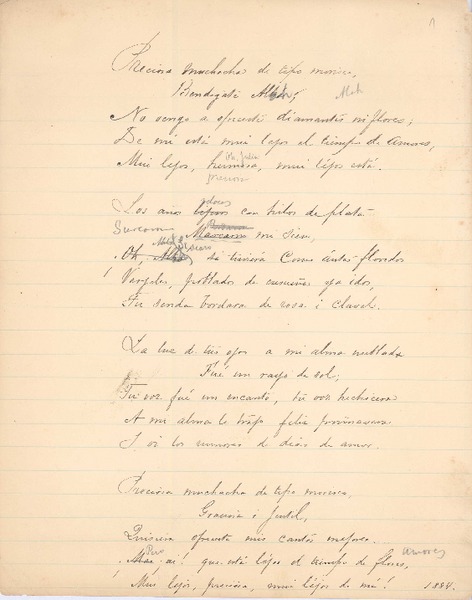 1
Preciosa muchacha de tipo morisco,
Bendigate Alah;
Alah
No vengo a ofrecerte diamantes ni flores;
De mí está mui lejos el tiempo de amores,
Mui lejos, hermosa, mui léjos está.
preciosa
Los años con hilos de plata
Surcaron mi sien,
Oh, si tuviera como ántes floridos
Verjeles, poblados de ensueños ya idos,
Tu senda bordara de rosa i clavel.
La luz de tus ojos a mi alma nublada
Fué un rayo de sol;
Tu voz fué un encanto, tu voz hechicera
A mi alma le trajo feliz primavera
I oí los rumores de dias de amor.
Preciosa muchacha de tipo moresco,
Graciosa i jentil,
Quisiera ofrecerte mis cantos mejores...
Mas ai! que está léjos el tiempo de flores,
amores
Mui lejos, preciosa, mui léjos de mí! 1884.